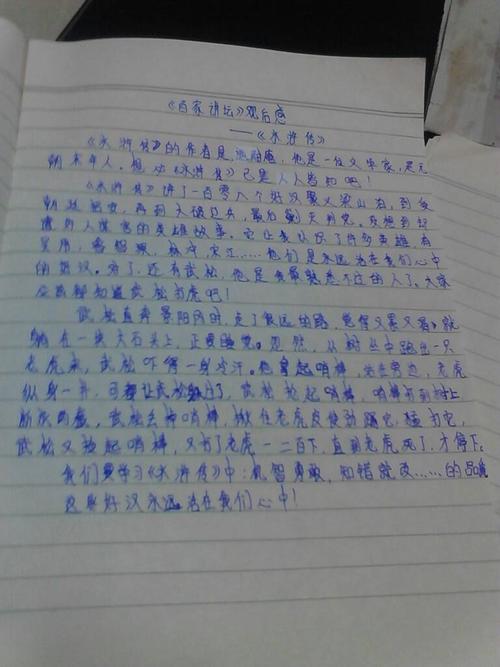 《百家讲坛》观后感
——《水浒传》
《水浒传》的作者是施耐庵，他是一位文学家，是元
朝末年人。想必《水浒传》已是人人皆知吧！
《水浒传》讲了一百零八个好汉聚义梁山泊，到受
朝廷招安，再到大破辽兵，最后剿灭方腊。没想到却
遭奸人谋害的英雄故事。它让我认识了许多英雄，有
吴用，鲁智深，林冲，宋江……他们是永远活在我们心中
的好汉。对了，还有武松，他是我最熟悉不过的人了。大家
应该都知道武松打虎吧！
武松直奔景阳冈时，走了很远的路，觉得又累又渴，就
躺在一块大石头上，正要睡觉。忽然，从树丛中跑出一只
老虎来，武松吓得一身冷汗。他拿起哨棒，站在旁边，老虎
纵身一扑，可都让武松躲过了，武松抡起哨棒，哨棒打到树上
断成两截，武松丢掉哨棒，揪住老虎皮使劲踢它，猛打它，
武松又捡起哨棒，又打了老虎一二百下，直到老虎死了，才停下。
我们要学习《水浒传》中：机智勇敢，知错就改……的品质
这些好汉永远活在我们心中！